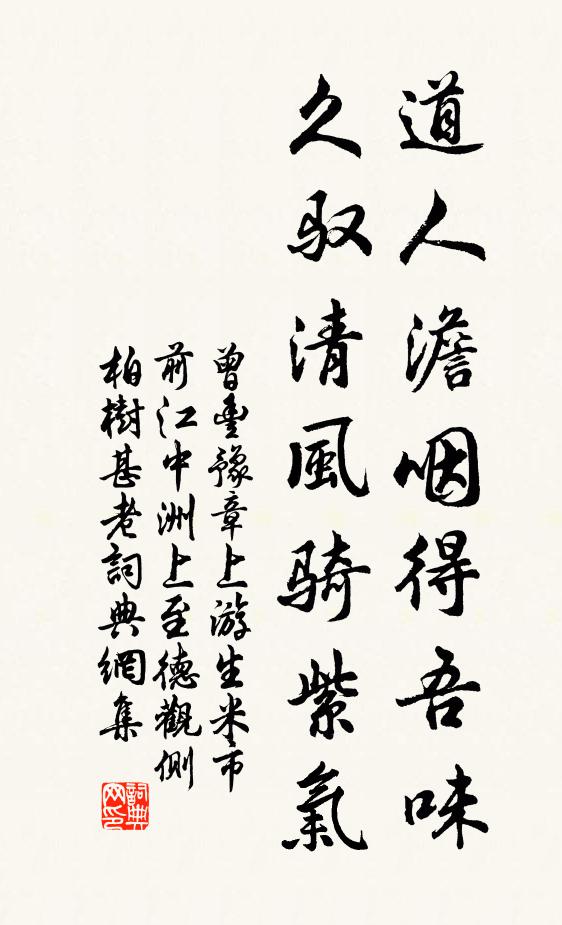 道人澹咽得吾味
久驭清風骑紫氣
曾豐豫章上游生米市
前江中洲上至德觀側
柏樹甚老詞典網集
詞典
网印